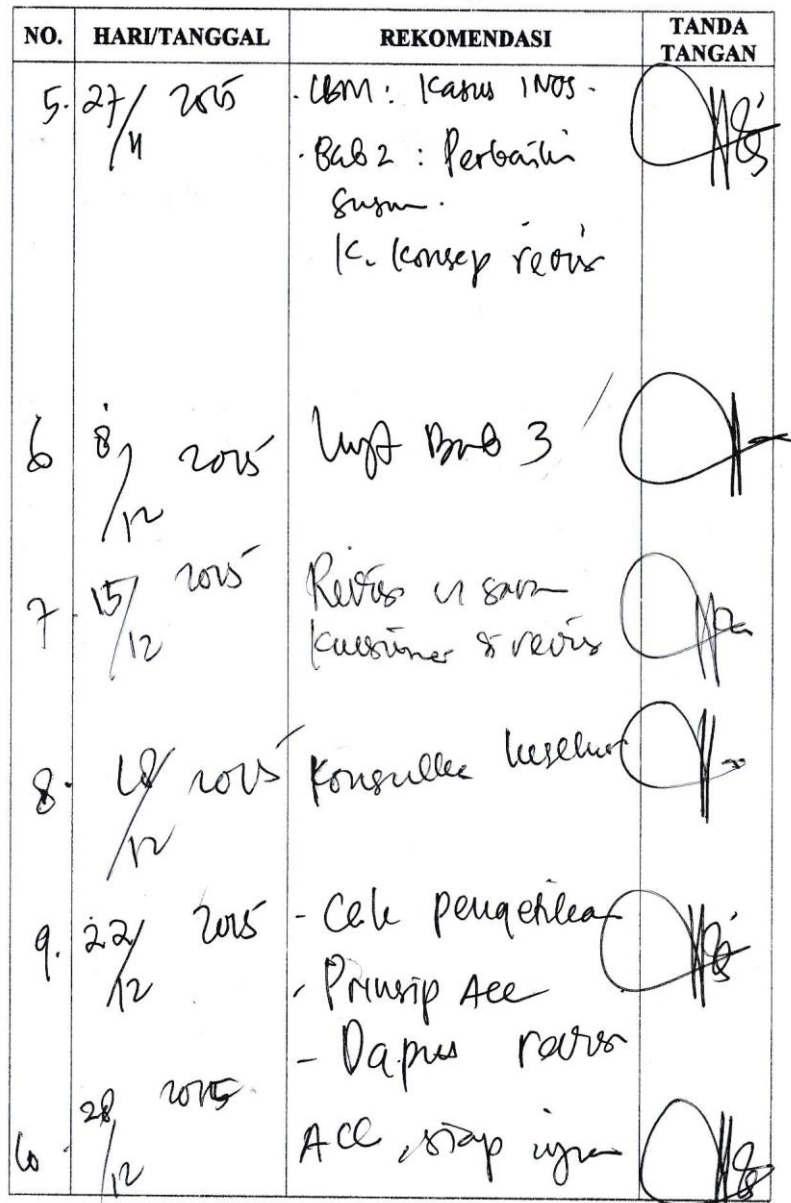 NO. HARI/TANGGAL REKOMENDASI TANDA TANGAN
5. 27/11 2015 - LBM : Kasus INOS.
- Bab 2 : Perbaiki
susun.
K. Konsep revisi
6 8/12 2015 Bab 3
7. 15/12 2015 Revisi saran
Kuesioner revisi
8. 18/12 2015
9. 22/12 2015 - Cek pengetikan
- Prinsip Acc
- Dapus revisi
28/12 2015 ACC, siap ujian